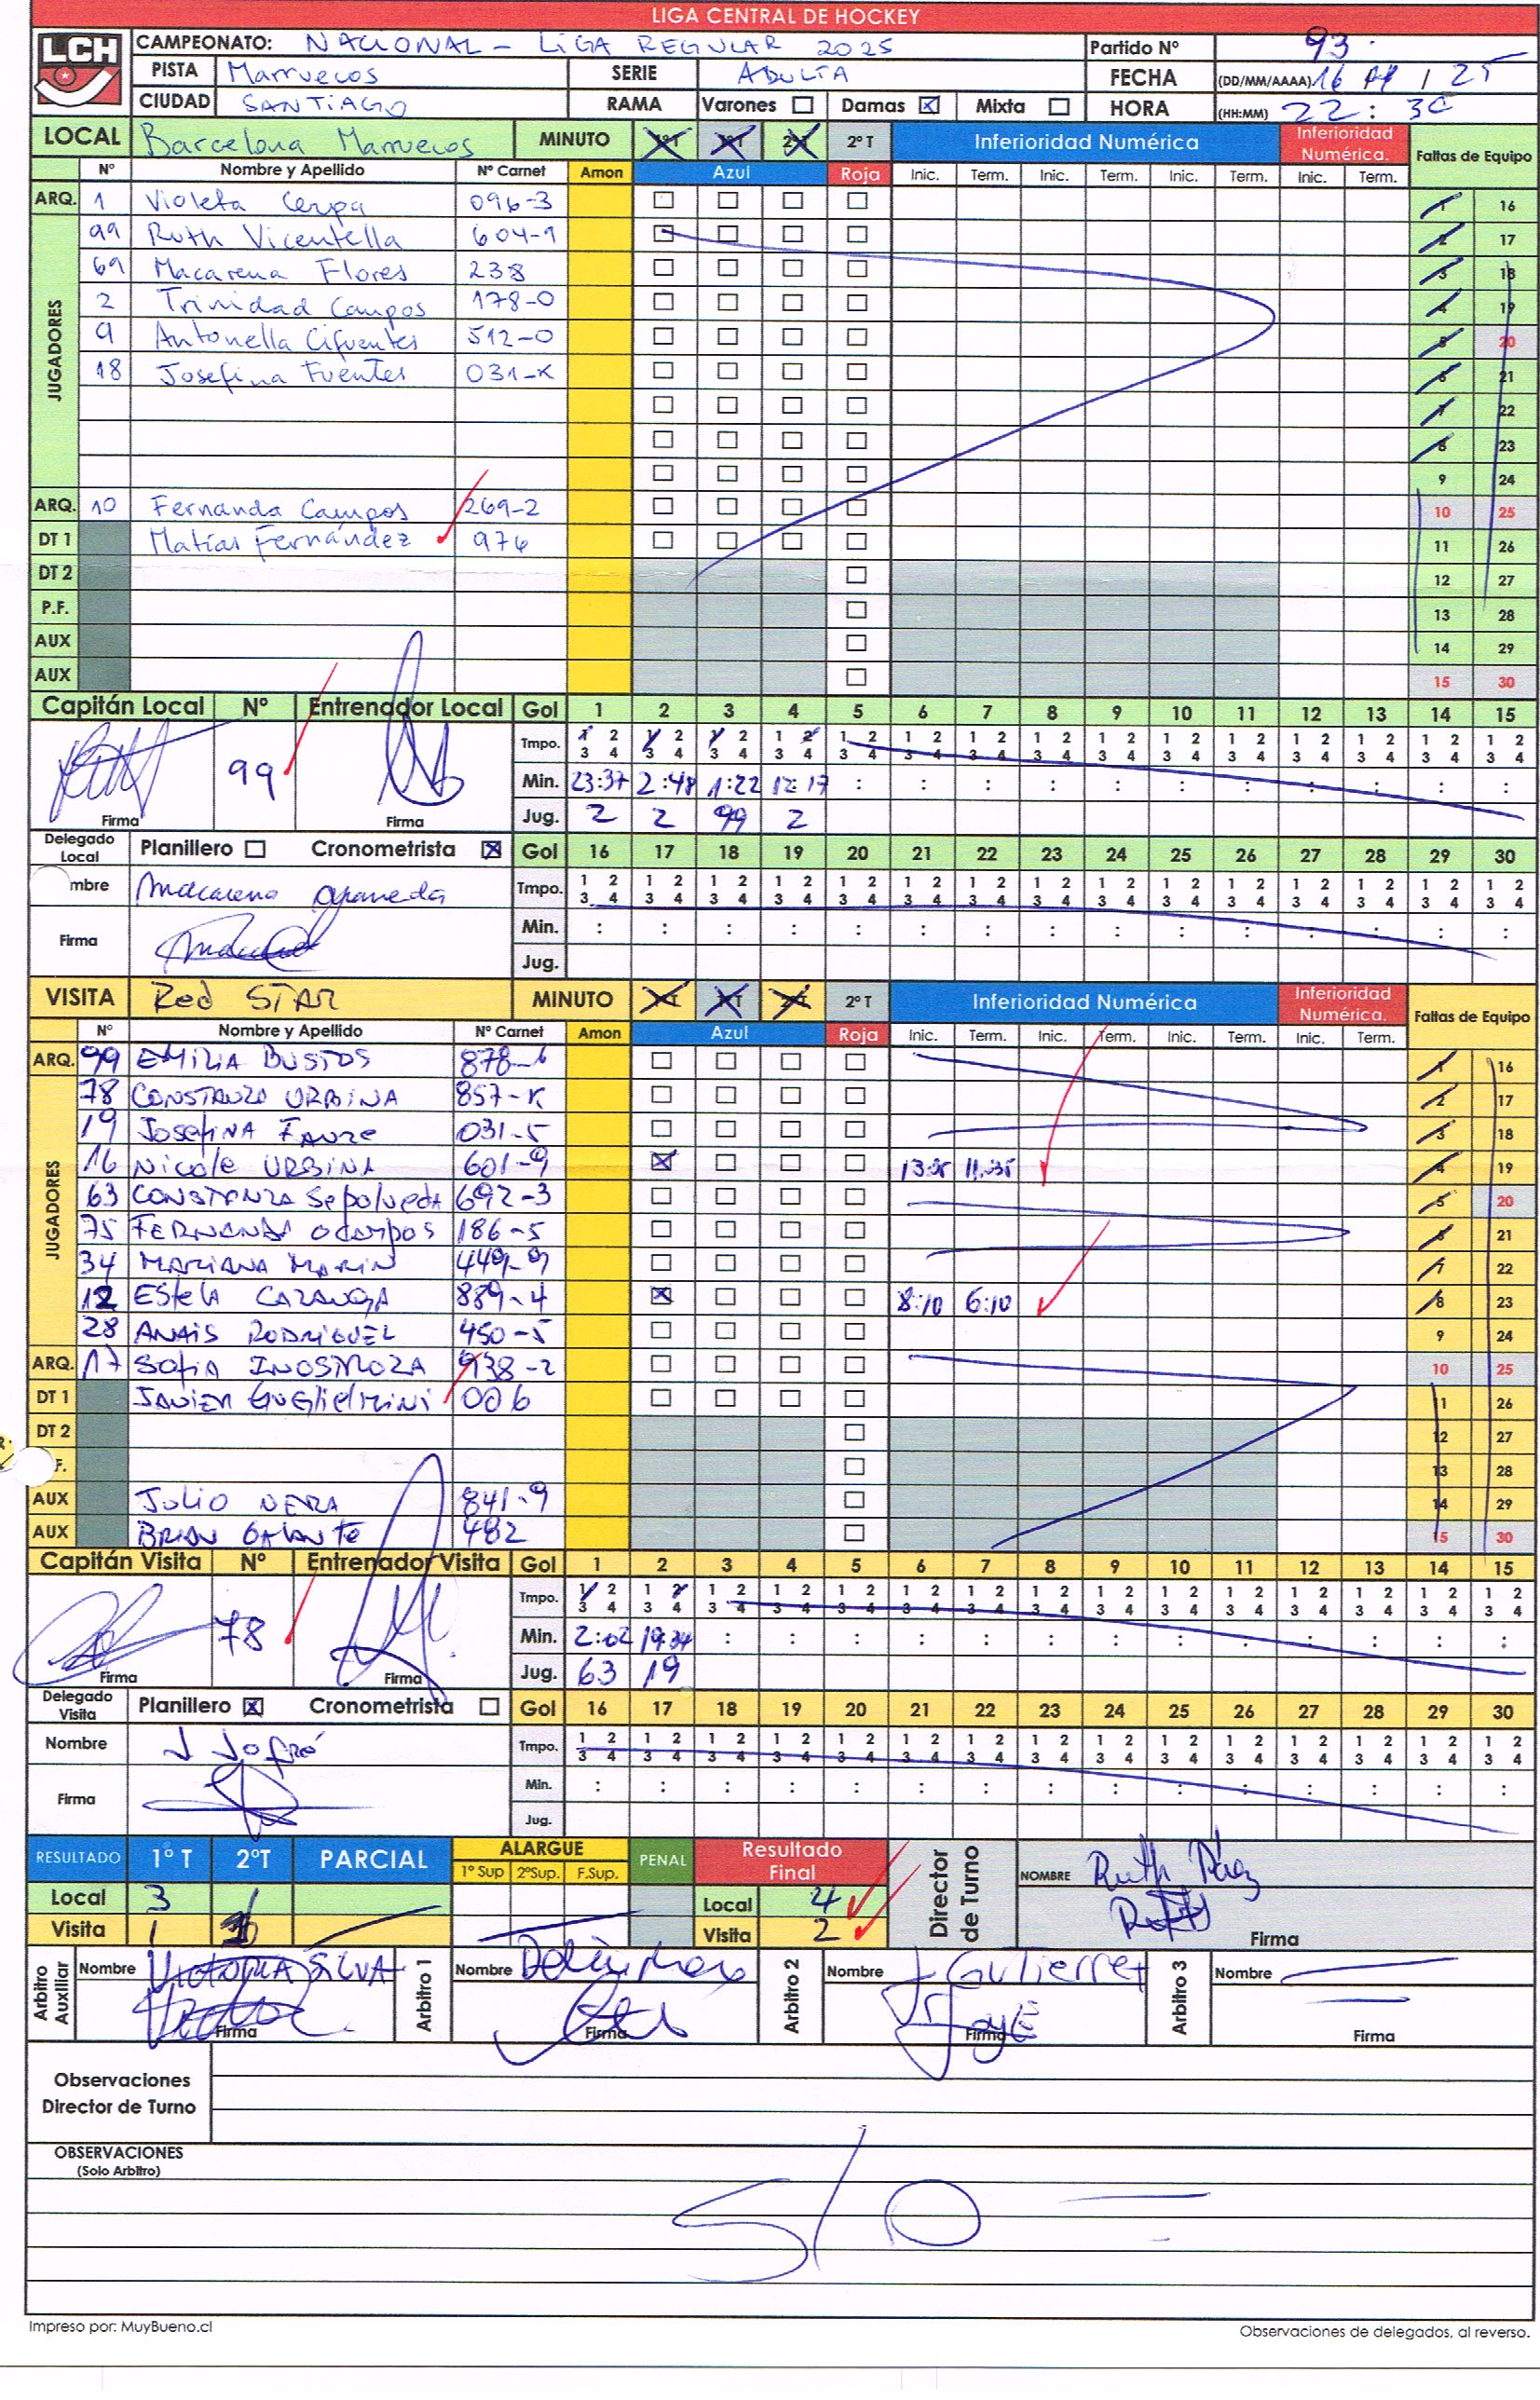 LIGA CENTRAL DE HOCKEY
LCH
CAMPEONATO: NACIONAL - LIGA REGULAR 2025 Partido Nº 93
PISTA Marruecos SERIE ADULTA FECHA (DD/MM/AAAA) 16 / 25
CIUDAD SANTIAGO RAMA Varones ☐ Damas ☒ Mixta ☐ HORA (HH:MM) 22 : 30
LOCAL Barcelona Marruecos MINUTO 1ºT 1ºT 2ºT 2º T Inferioridad Numérica Inferioridad Numérica. Faltas de Equipo
Nº Nombre y Apellido Nº Carnet Amon Azul Roja Inic. Term. Inic. Term. Inic. Term. Inic. Term.
ARQ. 1 Violeta Cerpa 096-3 1 16
JUGADORES
99 Ruth Vicentella 604-9 2 17
69 Macarena Flores 238 3 18
2 Trinidad Campos 178-0 4 19
9 Antonella Cifuentes 512-0 5 20
18 Josefina Fuentes 031-K 6 21
7 22
8 23
9 24
ARQ. 10 Fernanda Campos 269-2 10 25
DT 1 Matías Fernández 976 11 26
DT 2 12 27
P.F. 13 28
AUX 14 29
AUX 15 30
Capitán Local Nº Entrenador Local Gol 1 2 3 4 5 6 7 8 9 10 11 12 13 14 15
Tmpo. 1 2 3 4 1 2 3 4 1 2 3 4 1 2 3 4 1 2 3 4 1 2 3 4 1 2 3 4 1 2 3 4 1 2 3 4 1 2 3 4 1 2 3 4 1 2 3 4 1 2 3 4 1 2 3 4 1 2 3 4
99 Min. 23:37 2:48 1:22 12:17 : : : : : : : : : : :
Firma Firma Jug. 2 2 99 2
Delegado Local Planillero ☐ Cronometrista ☒ Gol 16 17 18 19 20 21 22 23 24 25 26 27 28 29 30
mbre Macarena Tmpo. 1 2 3 4 1 2 3 4 1 2 3 4 1 2 3 4 1 2 3 4 1 2 3 4 1 2 3 4 1 2 3 4 1 2 3 4 1 2 3 4 1 2 3 4 1 2 3 4 1 2 3 4 1 2 3 4 1 2 3 4
Firma Min. : : : : : : : : : : : : : : :
Jug.
VISITA Red STAR MINUTO 1ºT 1ºT 2ºT 2º T Inferioridad Numérica Inferioridad Numérica. Faltas de Equipo
Nº Nombre y Apellido Nº Carnet Amon Azul Roja Inic. Term. Inic. Term. Inic. Term. Inic. Term.
ARQ. 99 EMILIA BUSTOS 878-6 1 16
JUGADORES
78 CONSTANZA URBINA 857-K 2 17
19 JOSEFINA FAUZE 031-5 3 18
16 NICOLE URBINA 601-9 11:35 4 19
63 CONSTANZA Sepolveda 692-3 5 20
75 FERNANDA Ocampos 186-5 6 21
34 MARIANA MARIN 449-9 7 22
12 EStela 889-4 8:10 6:10 8 23
28 ANAIS RODRIGUEZ 450-5 9 24
ARQ. 17 SOFIA INOSTROZA 938-2 10 25
DT 1 JAVIER GUGlielMINI 006 11 26
DT 2 12 27
F. 13 28
AUX JULIO NEIRA 841-9 14 29
AUX BRIAN GALANTE 482 15 30
Capitán Visita Nº Entrenador Visita Gol 1 2 3 4 5 6 7 8 9 10 11 12 13 14 15
Tmpo. 1 2 3 4 1 2 3 4 1 2 3 4 1 2 3 4 1 2 3 4 1 2 3 4 1 2 3 4 1 2 3 4 1 2 3 4 1 2 3 4 1 2 3 4 1 2 3 4 1 2 3 4 1 2 3 4 1 2 3 4
78 Min. 2:02 19:34 : : : : : : : : : : : : :
Firma Firma Jug. 63 19
Delegado Visita Planillero ☒ Cronometrista ☐ Gol 16 17 18 19 20 21 22 23 24 25 26 27 28 29 30
Nombre J Jofré Tmpo. 1 2 3 4 1 2 3 4 1 2 3 4 1 2 3 4 1 2 3 4 1 2 3 4 1 2 3 4 1 2 3 4 1 2 3 4 1 2 3 4 1 2 3 4 1 2 3 4 1 2 3 4 1 2 3 4 1 2 3 4
Firma Min. : : : : : : : : : : : : : : :
Jug.
RESULTADO 1º T 2ºT PARCIAL ALARGUE 1º Sup 2ºSup. F.Sup. PENAL Resultado Final Director de Turno NOMBRE Ruth Páez
Local 3 1 Local 4
Visita 1 1 Visita 2 Firma
Arbitro Auxiliar Nombre VICTORIA SILVA Arbitro 1 Nombre Arbitro 2 Nombre J Gutierrez Arbitro 3 Nombre
Firma Firma Firma Firma
Observaciones
Director de Turno
OBSERVACIONES
(Solo Arbitro)
S/O
Impreso por: MuyBueno.cl Observaciones de delegados, al reverso.